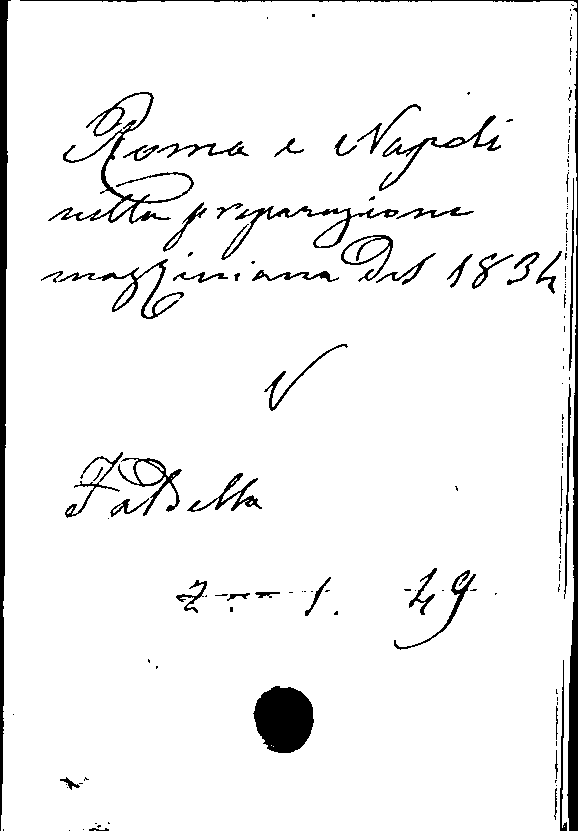 Roma e Napoli
nella preparazione
mazziniana del 1834
V
Faldella
Z. --- 1. 49